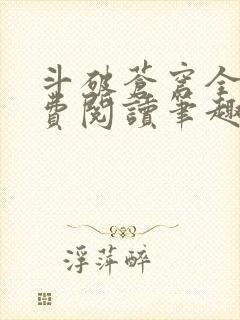 斗破苍穹全
费阅讀笔趣
浮萍醉